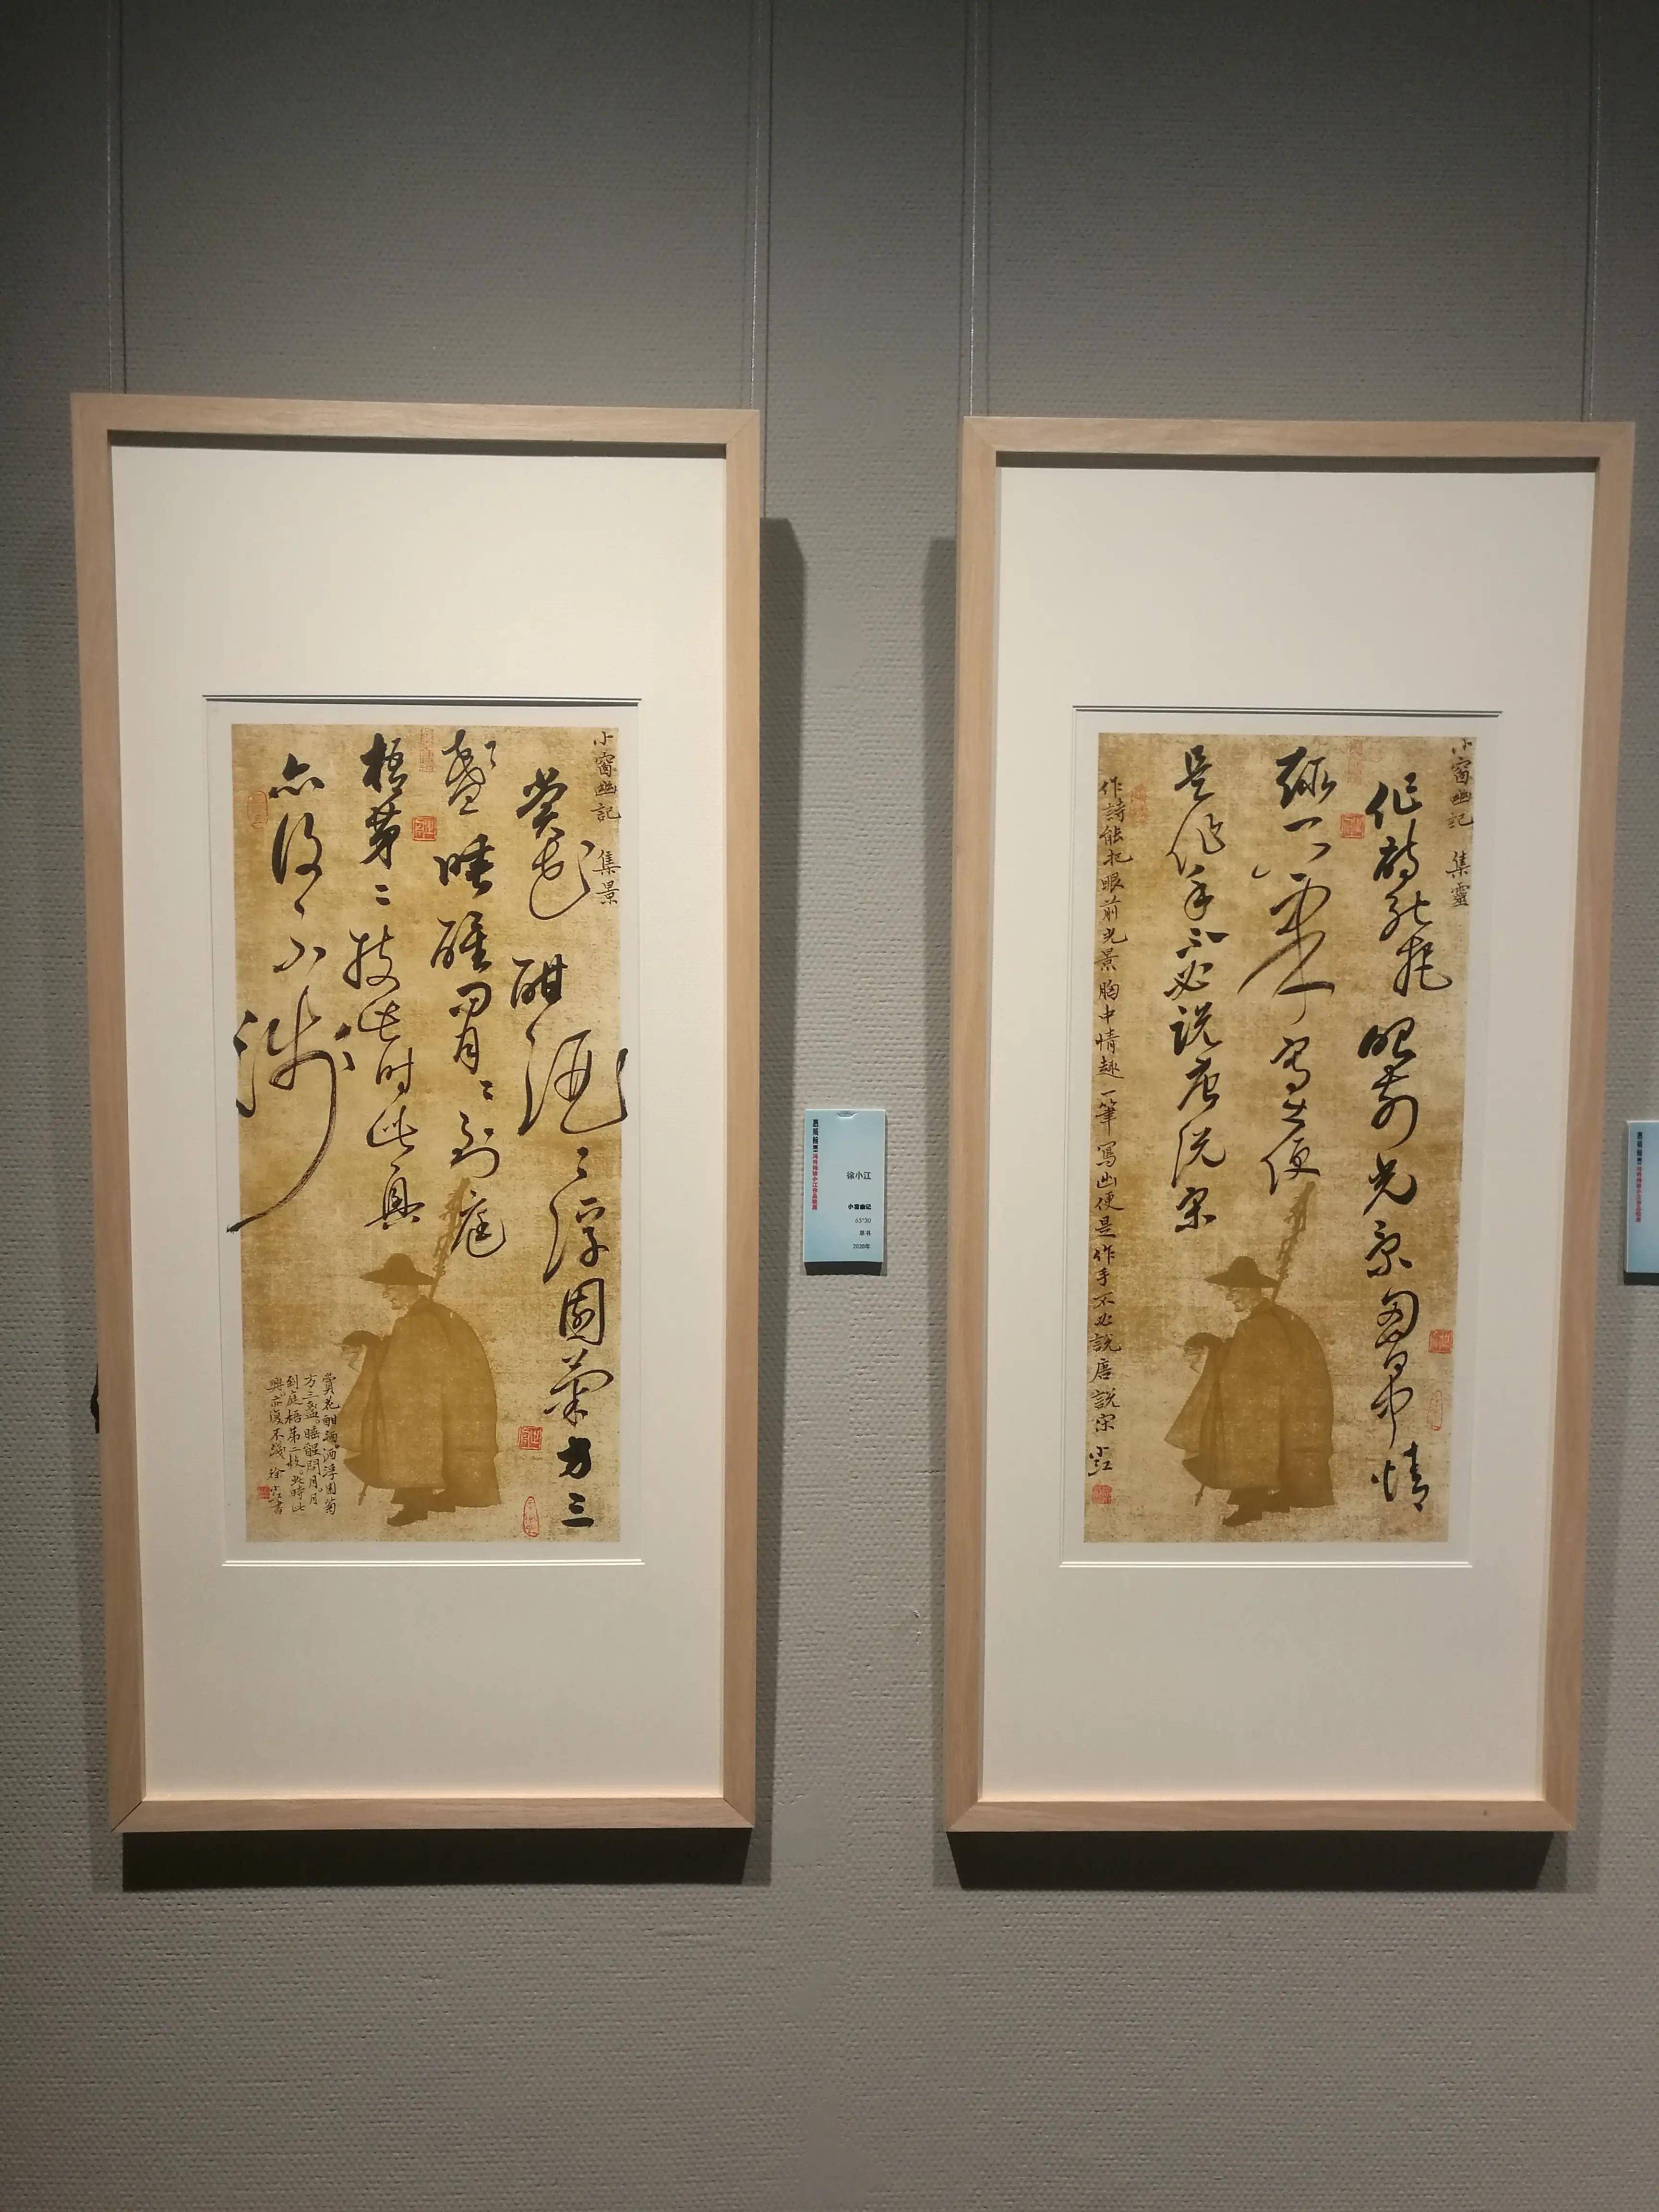 小窗幽記 集景
賞花酣酒〻浮園菊方三
盞睡醒問月〻到庭
梧第二枝此時此興
亦復不淺
賞花酣酒酒浮園菊
方三盞睡醒問月月
到庭梧第二枝此時此
興亦復不淺 徐小江書
徐小江
小窗幽记
65*30
草书
2020年
小窗幽記 集靈
作詩能把眼前光景胸中情
趣一筆寫出便
是作手不必說唐說宋
作詩能把眼前光景胸中情趣一筆寫出便是作手不必說唐說宋 小江